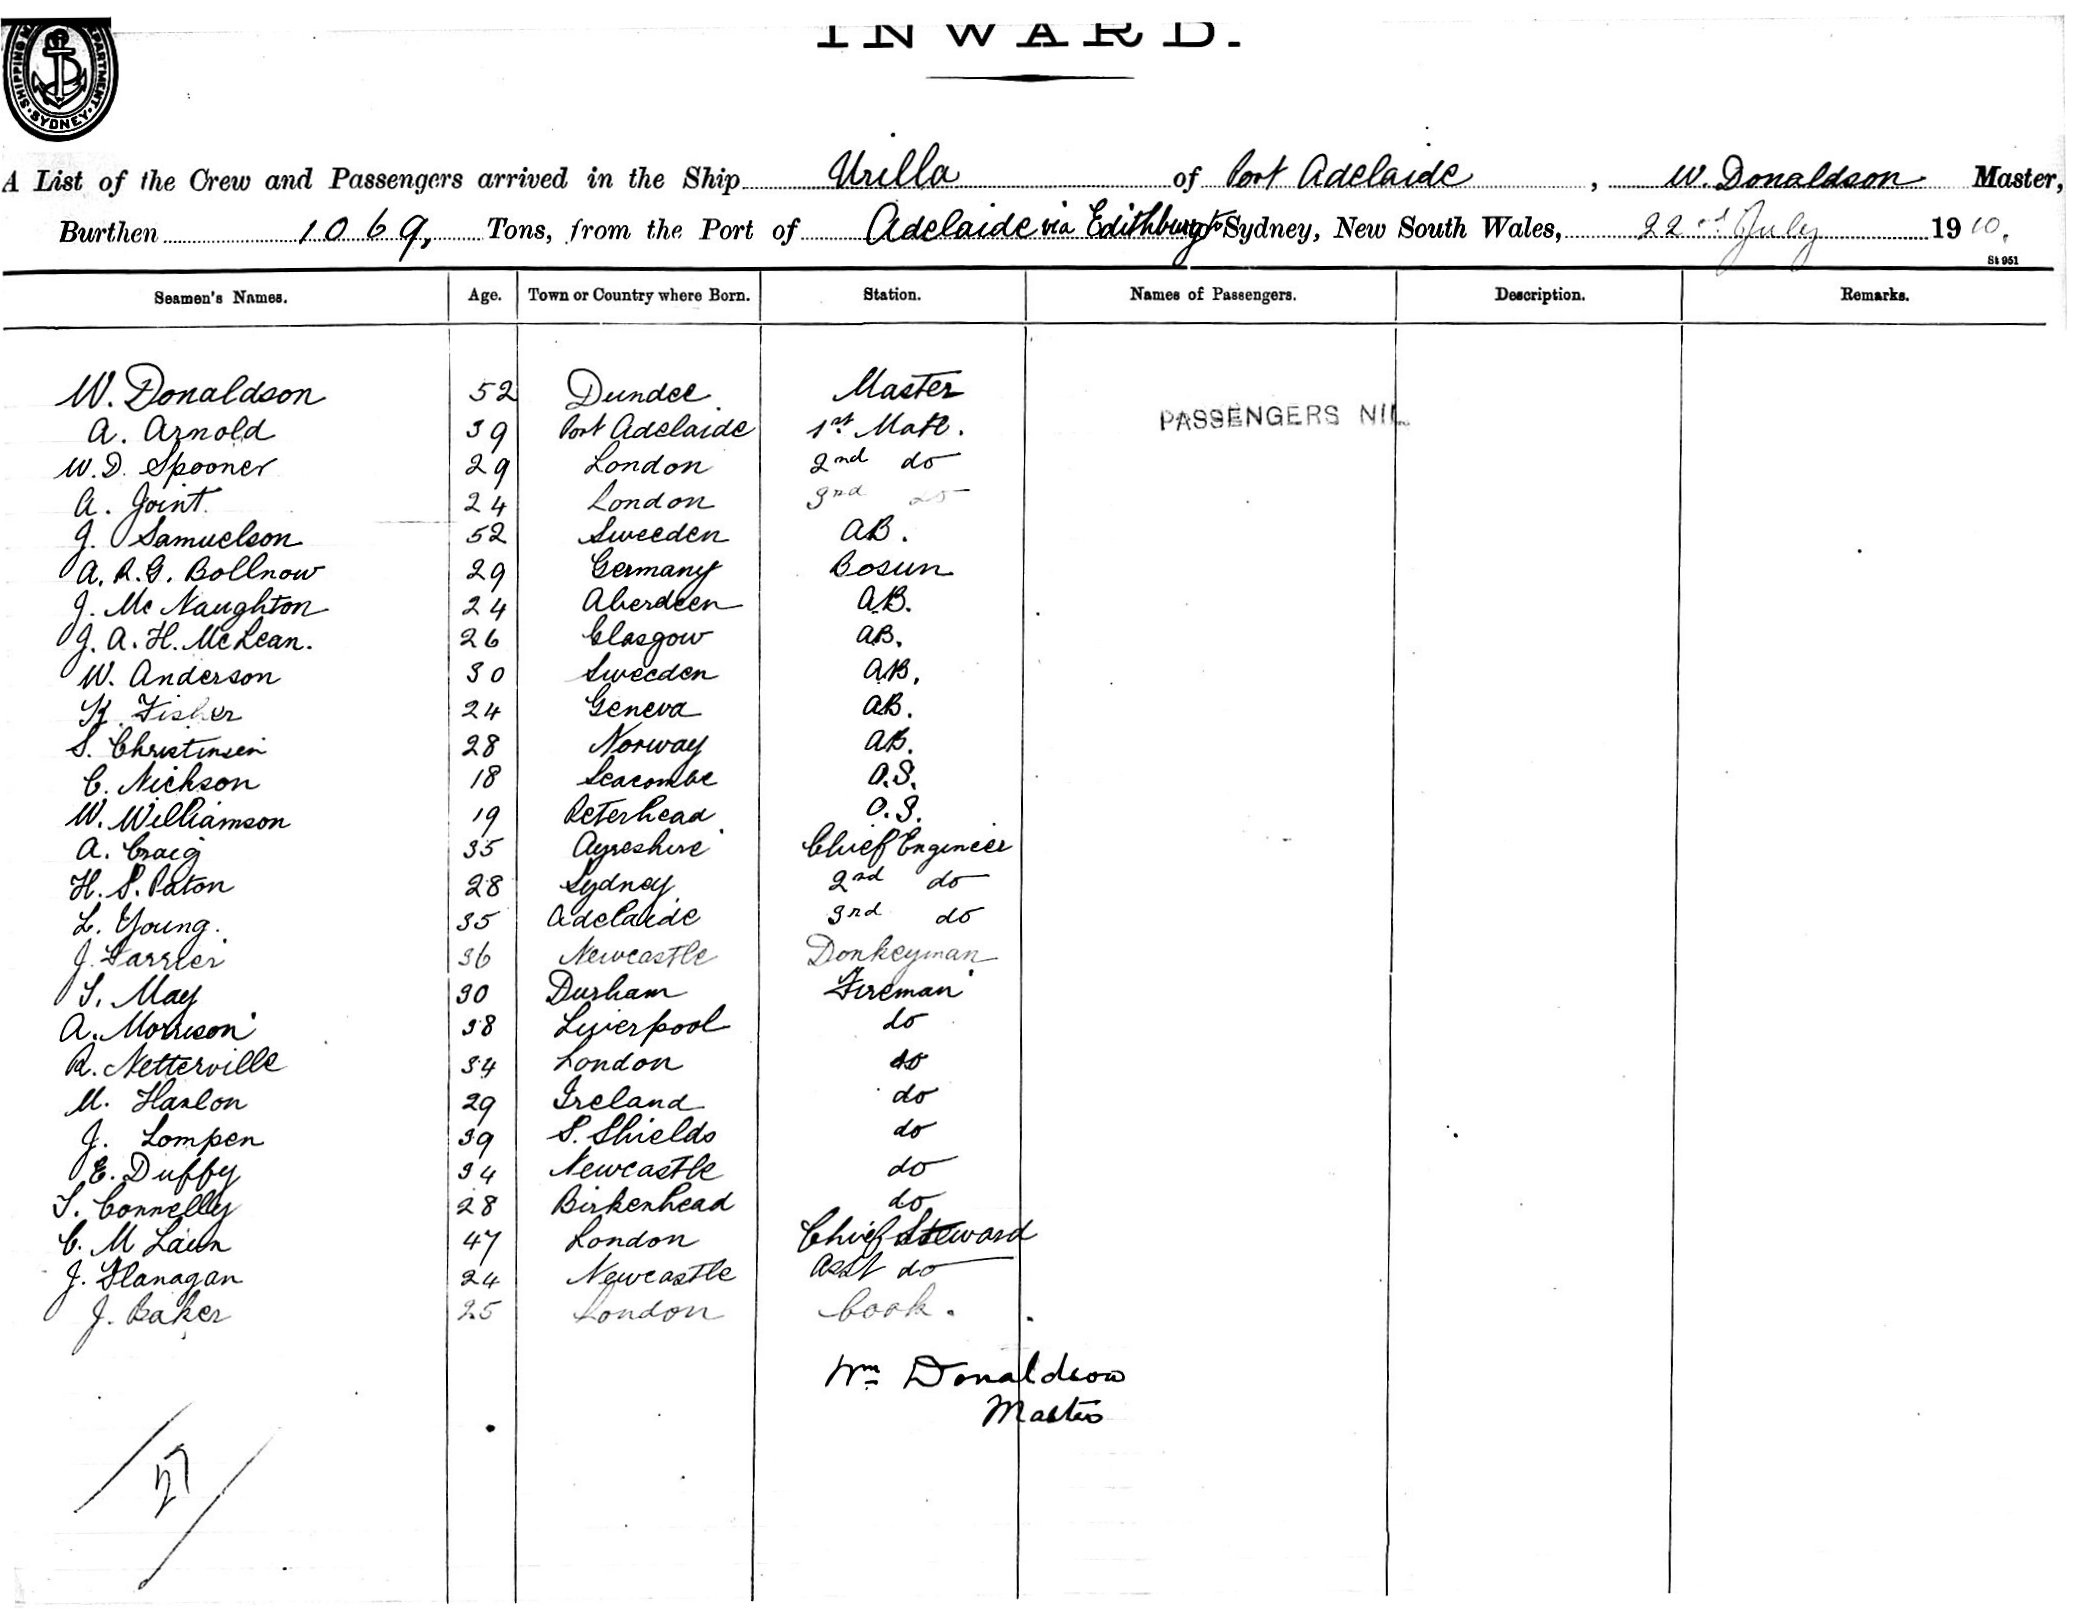 SHIPPING DEPARTMENT · SYDNEY ·
INWARD.
A List of the Crew and Passengers arrived in the Ship Urilla of Port Adelaide, W. Donaldson Master,
Burthen 1069, Tons, from the Port of Adelaide via Edithburg to Sydney, New South Wales, 22nd July 1910.
St 951
Seamen's Names. Age. Town or Country where Born. Station. Names of Passengers. Description. Remarks.
W. Donaldson 52 Dundee Master
PASSENGERS NIL
A. Arnold 39 Port Adelaide 1st Mate.
W. D. Spooner 29 London 2nd do
A. Joint 24 London 3rd do
J. Samuelson 52 Sweeden AB.
A. R. G. Bollnow 29 Germany Bosun
J. Mc Naughton 24 Aberdeen AB.
J. A. H. McLean. 26 Glasgow AB.
W. Anderson 30 Sweeden AB.
K. Fisher 24 Geneva AB.
S. Christinsen 28 Norway AB.
C. Nickson 18 Seacombe O.S.
W. Williamson 19 Peterhead O.S.
A. Craig 35 Ayreshire Chief Engineer
H. S. Paton 28 Sydney 2nd do
L. Young. 35 Adelaide 3rd do
J. Farrier 36 Newcastle Donkeyman
S. May 30 Durham Fireman
A. Morrison 38 Liverpool do
R. Netterville 34 London do
M. Hanlon 29 Ireland do
J. Lompen 39 S. Shields do
E. Duffy 34 Newcastle do
T. Connelly 28 Birkenhead do
C. M 47 London Chief Steward
J. Flanagan 24 Newcastle Asst do
J. Baker 25 London Cook.
Wm Donaldson
Master
27